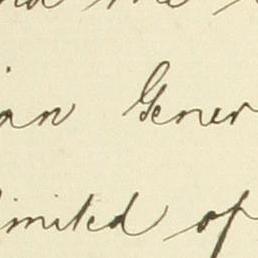 an Gener
limited of